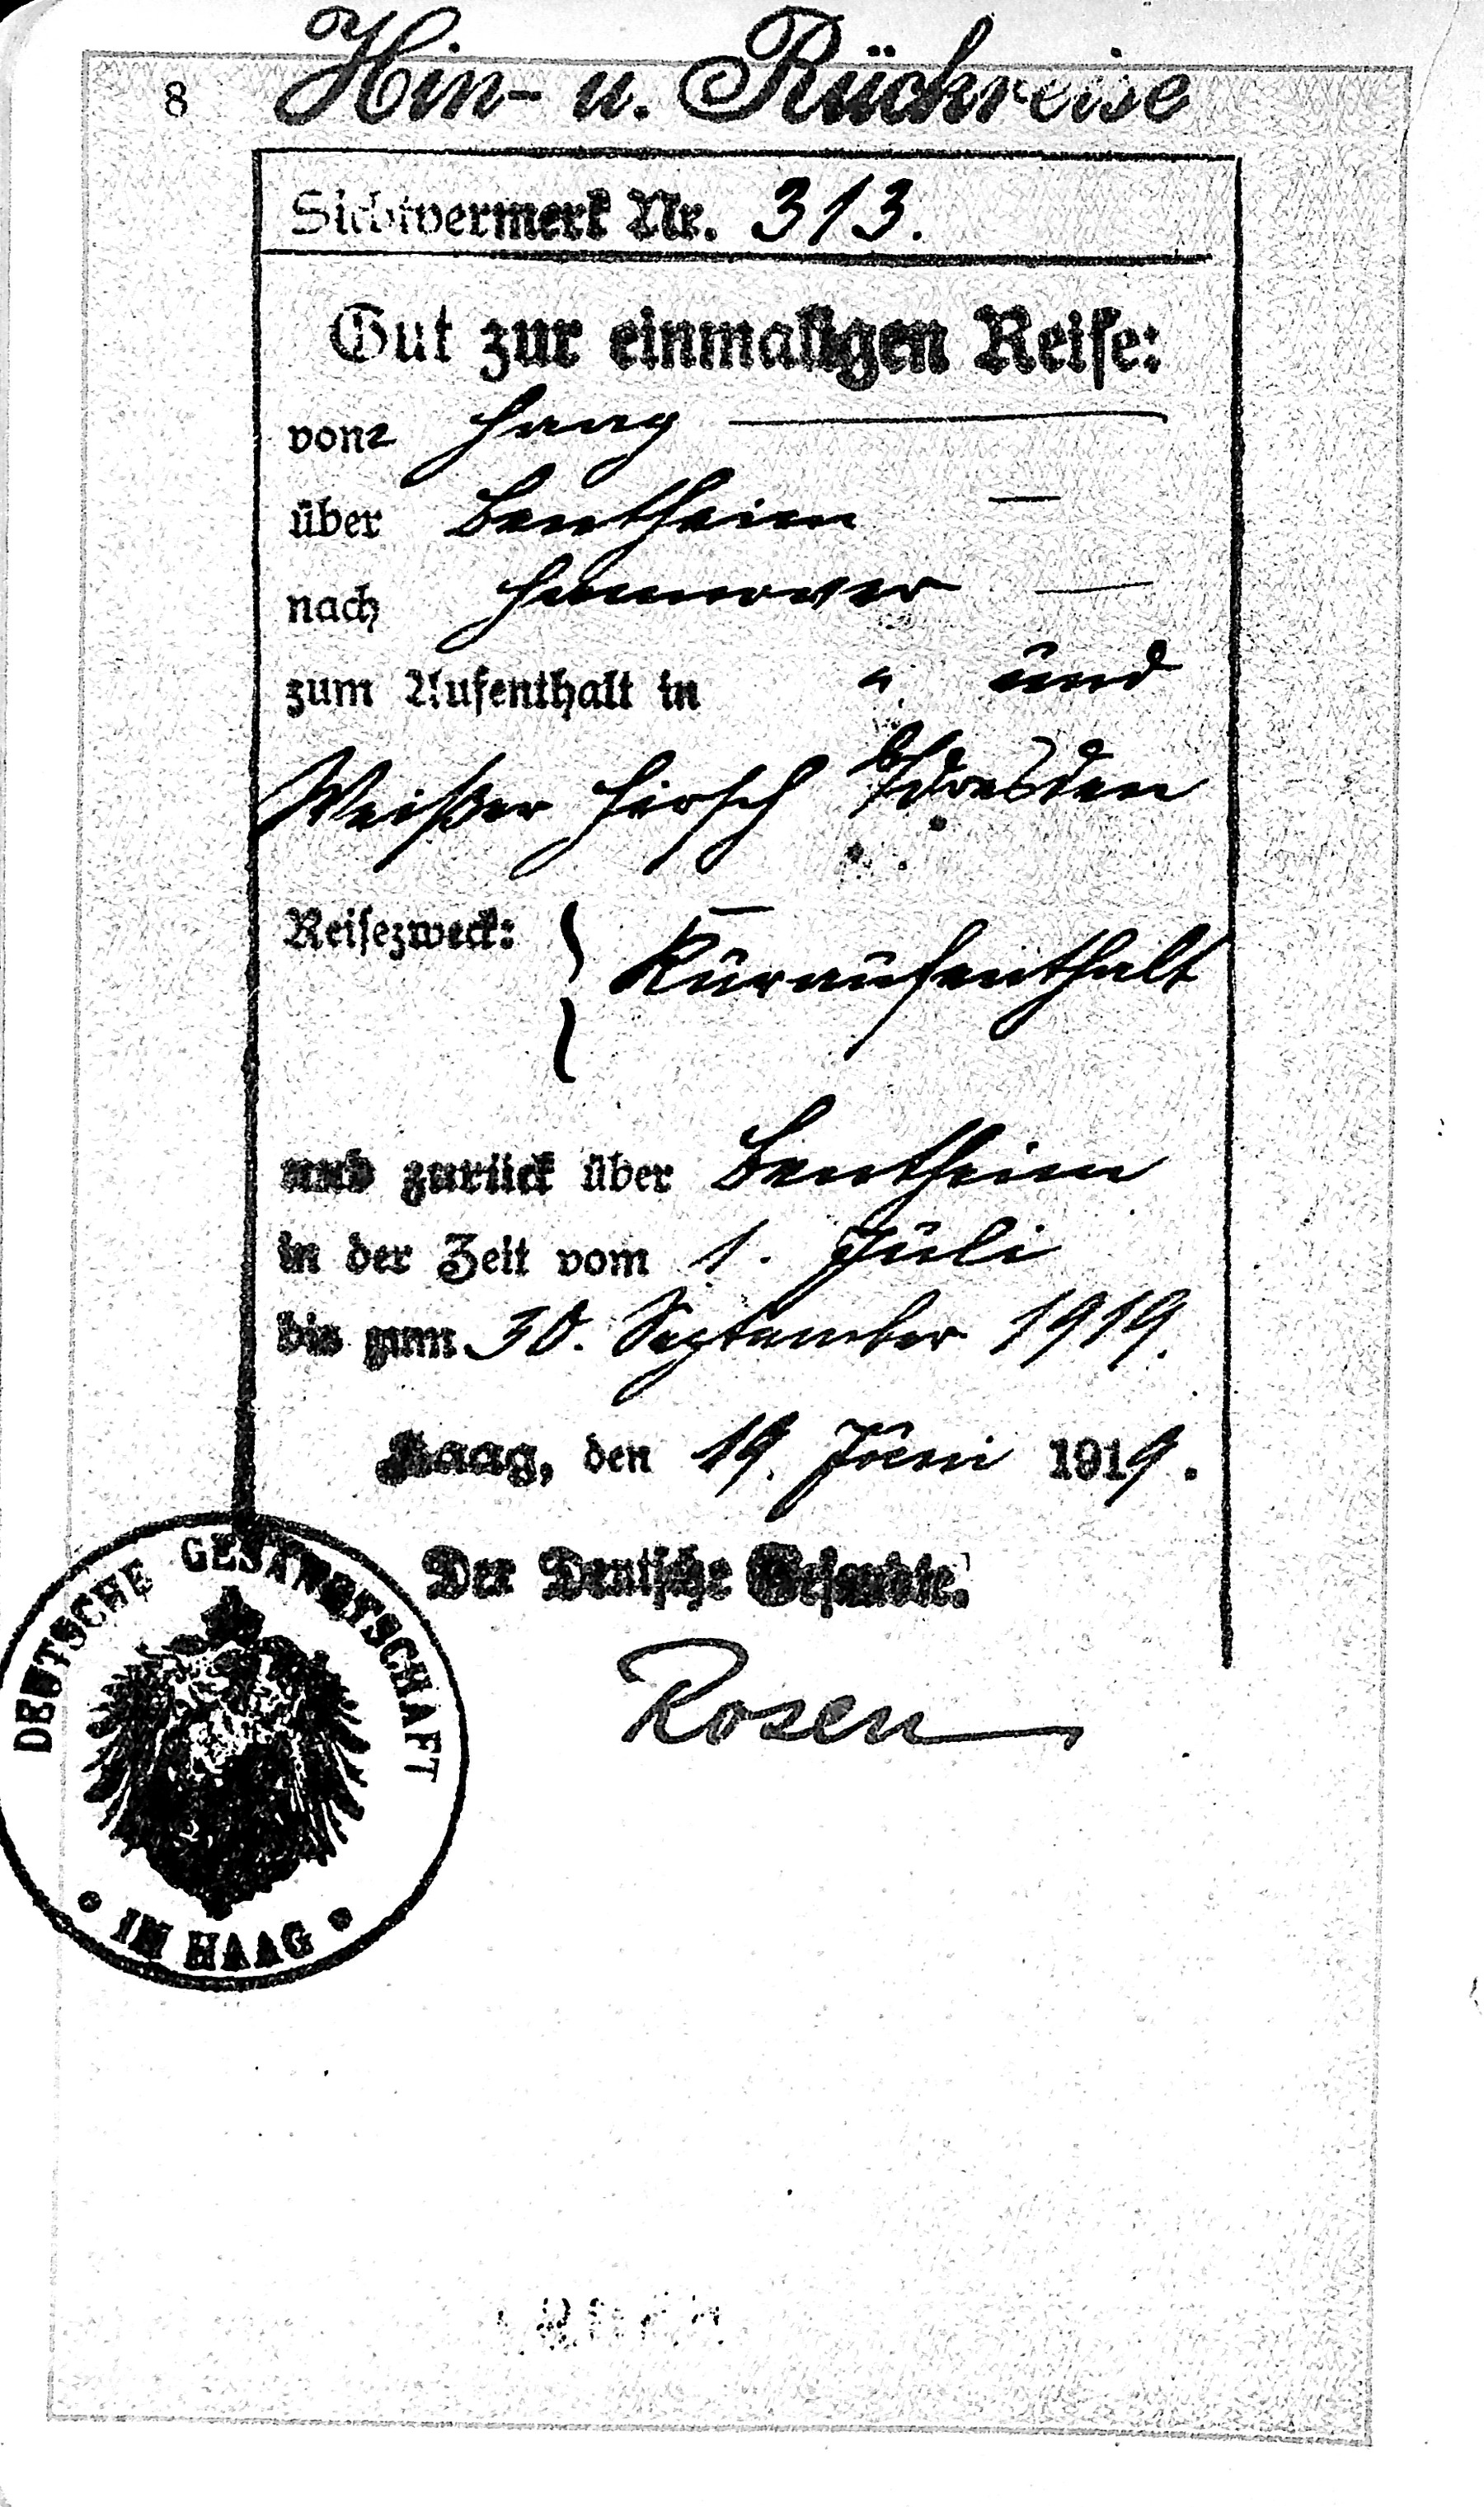 8
Hin- u. Rückreise
Sichtvermerk Nr. 313.
Gut zur einmaligen Reise:
von Haag
über Bentheim
nach Hannover
zum Aufenthalt in " und
Weißer Hirsch b/Dresden
Reisezweck: } Kuraufenthalt
und zurück über Bentheim
in der Zeit vom 1. Juli
bis zum 30. September 1919.
Haag, den 19. Juni 1919.
Der Deutsche Gesandte.
Rosen
DEUTSCHE GESANDTSCHAFT
IM HAAG